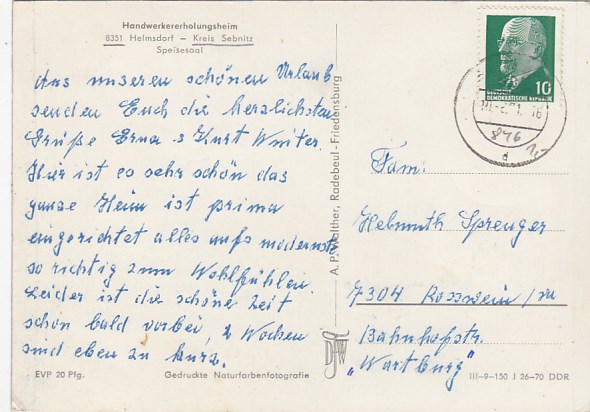 Handwerkererholungsheim
8351 Helmsdorf – Kreis Sebnitz
Speisesaal
Aus unseren schönen Urlaub
senden Euch die herzlichsten
Grüße Erna u Kurt Winter.
Hier ist es sehr schön das
ganze Heim ist prima
eingerichtet alles aufs modernste
so richtig zum Wohlfühlen.
Leider ist die schöne Zeit
schon bald vorbei, 2 Wochen
sind eben zu kurz.
EVP 20 Pfg.
Gedruckte Naturfarbenfotografie
A. P. Walther, Radebeul-Friedensburg
10
DEUTSCHE DEMOKRATISCHE REPUBLIK
846
d
Fam.
Helmuth Sprenger
7304 Rosswein/Sa
Bahnhofstr.
"Wartburg"
III–9–150 J 26–70 DDR